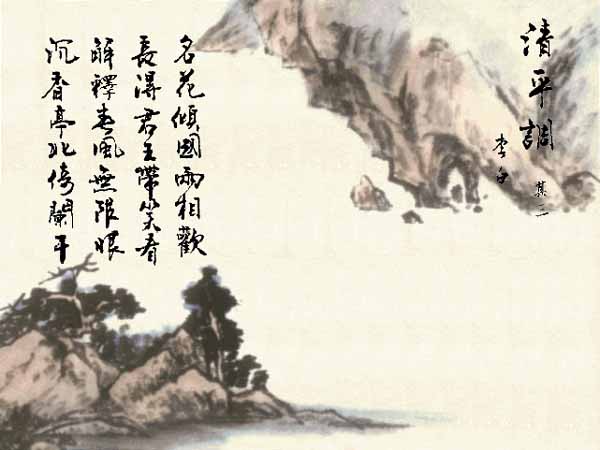 清平調
其三
李白
名花傾國兩相歡
長得君王帶笑看
解釋春風無限恨
沉香亭北倚闌干